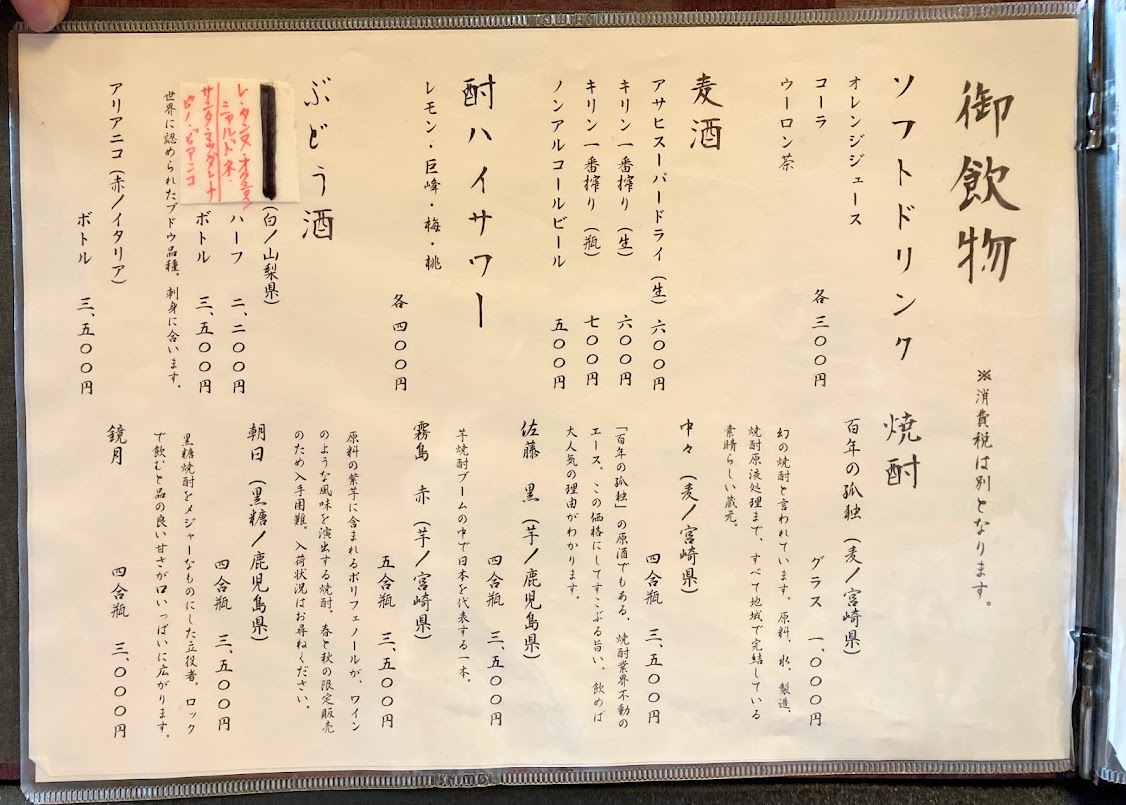 御飲物
※消費税は別となります。
ソフトドリンク
オレンジジュース
コーラ
ウーロン茶
各 三〇〇円
麦酒
アサヒスーパードライ(生) 六〇〇円
キリン一番搾り(生) 六〇〇円
キリン一番搾り(瓶) 七〇〇円
ノンアルコールビール 五〇〇円
酎ハイサワー
レモン・巨峰・梅・桃
各 四〇〇円
ぶどう酒
(白/山梨県)
ハーフ 二、二〇〇円
ボトル 三、五〇〇円
サンタ・マッダレーナ
ピノ・ビアンコ
世界に認められたブドウ品種。刺身に合います。
アリアニコ(赤/イタリア)
ボトル 三、五〇〇円
焼酎
百年の孤独(麦/宮崎県)
グラス 一、〇〇〇円
幻の焼酎と言われています。原料、水、製造、
焼酎原液処理まで、すべて地域で完結している
素晴らしい蔵元。
中々(麦/宮崎県)
四合瓶 三、五〇〇円
「百年の孤独」の原酒でもある、焼酎業界不動の
エース。この価格にしてすこぶる旨い。飲めば
大人気の理由がわかります。
佐藤 黒(芋/鹿児島県)
四合瓶 三、五〇〇円
芋焼酎ブームの中で日本を代表する一本。
霧島 赤(芋/宮崎県)
五合瓶 三、五〇〇円
原料の紫芋に含まれるポリフェノールが、ワイン
のような風味を演出する焼酎。春と秋の限定販売
のため入手困難。入荷状況はお尋ねください。
朝日(黒糖/鹿児島県)
四合瓶 三、五〇〇円
黒糖焼酎をメジャーなものにした立役者。ロック
で飲むと品の良い甘さが口いっぱいに広がります。
鏡月
四合瓶 三、〇〇〇円